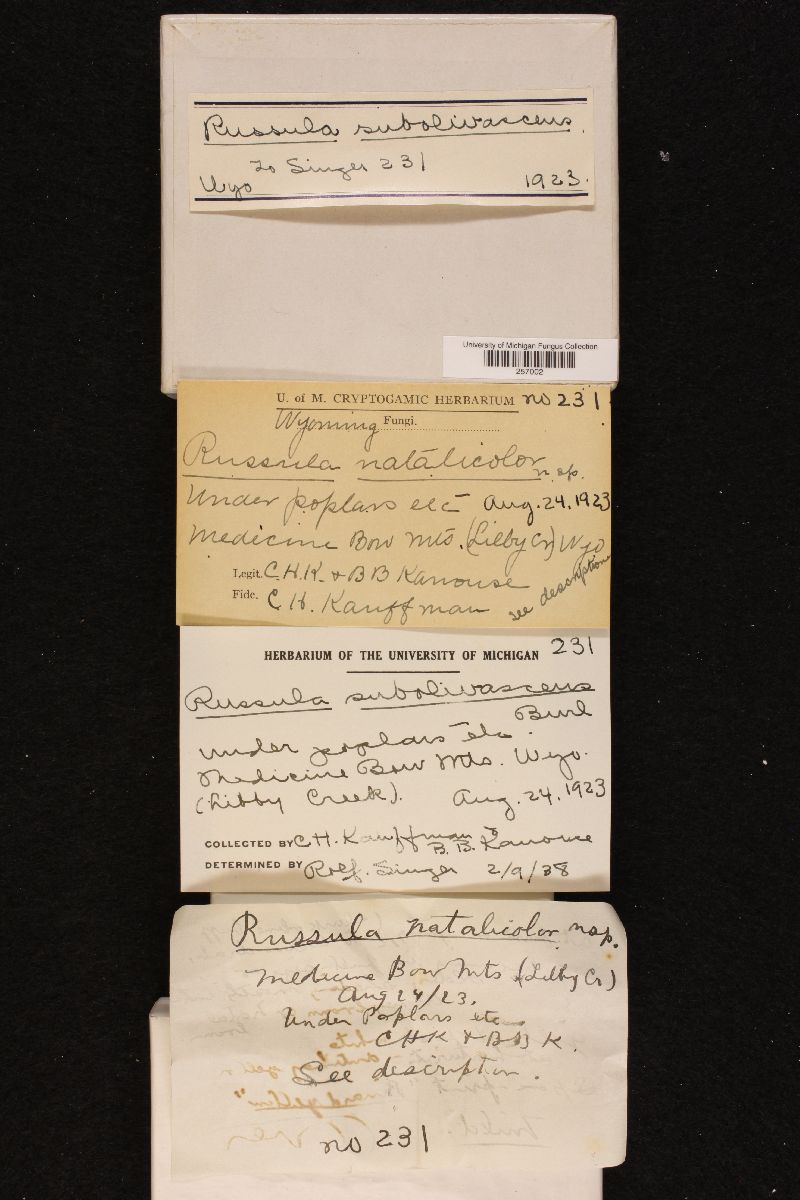 Russula subolivascens.
To Singer 231
Wyo 1923.
University of Michigan Fungus Collection
257002
U. of M. CRYPTOGAMIC HERBARIUM no 231.
Wyoming Fungi.
Russula natalicolor n. sp.
Under poplars etc Aug. 24. 1923
Medicine Bow Mts. (Libby Cr) Wyo
Legit. C. H. K. & B B Kanouse
Fide. C H. Kauffman see description
HERBARIUM OF THE UNIVERSITY OF MICHIGAN 231
Russula subolivascens
Burl
under poplars etc.
Medicine Bow Mts. Wyo.
(Libby Creek). Aug. 24. 1923
COLLECTED BY C H. Kauffman &
B. B. Kanouse
DETERMINED BY Rolf. Singer 2/9/38
Russula natalicolor n sp.
Medicine Bow Mts (Libby Cr)
Aug 24/23.
Under Poplars etc
CHK & B B K.
See description.
no 231